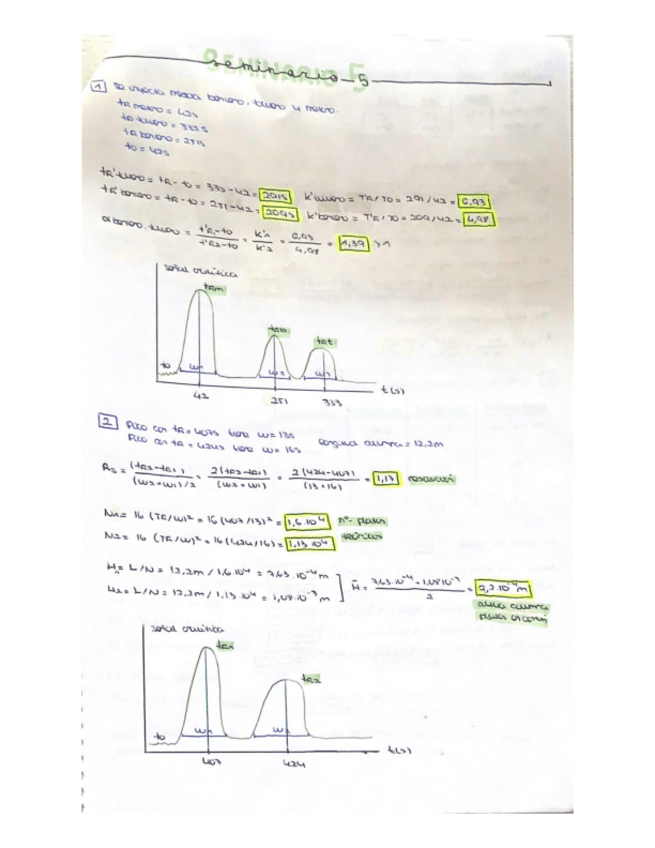 seminario_5
1 Se inyecta mezcla benceno, tolueno y metano.
tR metano = 42s
tR tolueno = 333s
tR benceno = 251s
t0 = 42s
tR' tolueno = tR - t0 = 333 - 42 = 291s k' tolueno = T'R / T0 = 291 / 42 = 6,93
tR' benceno = tR - t0 = 251 - 42 = 209s k' benceno = T'R / T0 = 209 / 42 = 4,98
α benceno, tolueno = t'R1 - t0 / t'R2 - t0 = k'1 / k'2 = 6,93 / 4,98 = 1,39 > 1
señal cromática
tRm
tRb
tRt
t0 W1 W2 W3
t(s)
42 251 333
2 Pico con tR = 407s tiene w = 13s
Pico con tR = 424s tiene w = 16s longitud columna = 12,2m
Rs = (tR2 - tR1) / (w2 + w1) / 2 = 2(tR2 - tR1) / (w2 + w1) = 2(424 - 407) / (13 + 16) = 1,17 resolución
N1 = 16 (TR/W)² = 16 (407 / 13)² = 1,6·10⁴ nº platos
N2 = 16 (TR/W)² = 16 (424 / 16) = 1,13·10⁴ teóricos
H1 = L/N = 12,2m / 1,6·10⁴ = 7,63·10⁻⁴ m
H2 = L/N = 12,2m / 1,13·10⁴ = 1,08·10⁻³ m
H̄ = 7,63·10⁻⁴ + 1,08·10⁻³ / 2 = 9,2·10⁻⁴ m
altura columna
señal cromática
tR1
tR2
t0 W1 W2
t(s)
407 424